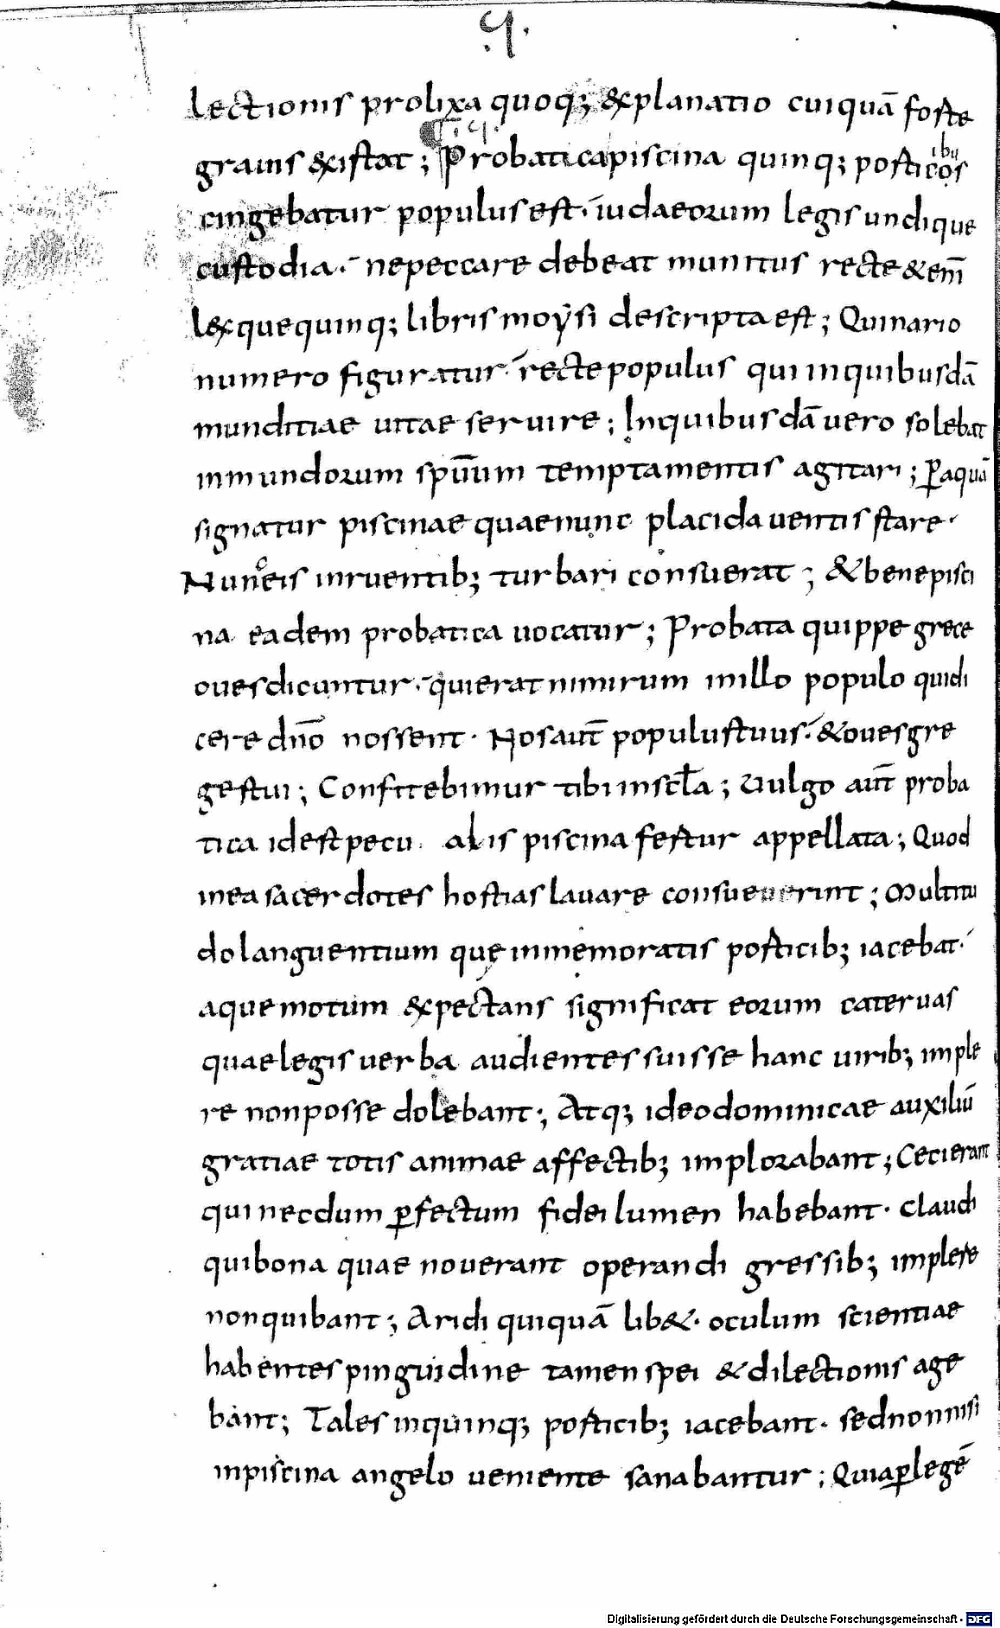 .q.
lectionis prolixa quoq; &xplanatio cuiquā foste
grauis &xistat; Probatica piscina quinq; posticos
ibu
cingebatur populus est iudaeorum legis undique
custodia. ne peccare debeat munitus recte & em̄
lex que quinq; libris moẏsi descripta est; Quinario
numero figuratur recte populus qui in quibusdā
munditiae uitae seruire; In quibusdā uero solebat
inmundorum spūum temptamentis agitari; ꝑ aquā
signatur piscinae quae nunc placida uentis stare.
Nunc eis inruentib; turbari consuerat; & bene pisci
na eadem probatica uocatur; Probata quippe grece
oues dicuntur. qui erat nimirum in illo populo qui di
cere dn̄o nossent. Nos aut̄ populus tuus. & oues gre
gestui; Confitebimur tibi in scl̄a; Uulgo aut̄ proba
tica id est pecu alis piscina festur appellata; Quod
in ea sacerdotes hostias lauare consueuerint; Multitu
do languentium quę in memoratis posticib; iacebat.
aque motum &xpectans significat eorum cateruas
quae legis uerba audientes suisse hanc uirib; imple
re non posse dolebant; Atq; ideo dominicae auxiliū
gratiae totis animae affectib; implorabant; Ceci erant
qui necdum ꝑfectum fidei lumen habebant. Claudi
qui bona quae nouerant operandi gressib; implere
non quibant; Aridi quiquā lib&. oculum scientiae
habentes pinguidine tamen spei & dilectionis age
bant; Tales in quinq; posticib; iacebant. sed non nisi
in piscina angelo ueniente sanabantur; Quia ꝑ legē
Digitalisierung gefördert durch die Deutsche Forschungsgemeinschaft - DFG